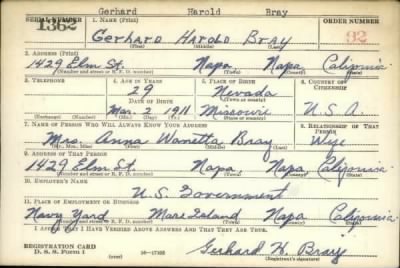 Gerhard Harold Bray
SERIAL NUMBER 1. NAME (Print) ORDER NUMBER
1362 Gerhard Harold Bray 92
(First) (Middle) (Last)
2. ADDRESS (Print)
1429 Elm St. Napa Napa California
(Number and street or R. F. D. number) (Town) (County) (State)
3. TELEPHONE 4. AGE IN YEARS 5. PLACE OF BIRTH 6. COUNTRY OF CITIZENSHIP
29 Nevada
DATE OF BIRTH (Town or county)
Mar. 2 1911 Missouri U.S.A.
(Exchange) (Number) (Mo.) (Day) (Yr.) (State or country)
7. NAME OF PERSON WHO WILL ALWAYS KNOW YOUR ADDRESS 8. RELATIONSHIP OF THAT PERSON
Mrs. Anna Bray Wife
(Mr., Mrs., Miss) (First) (Middle) (Last)
9. ADDRESS OF THAT PERSON
1429 Elm St. Napa Napa California
(Number and street or R. F. D. number) (Town) (County) (State)
10. EMPLOYER'S NAME
U.S. Government
11. PLACE OF EMPLOYMENT OR BUSINESS
Navy Yard Mare Island Napa California
(Number and street or R. F. D. number) (Town) (County) (State)
I AFFIRM THAT I HAVE VERIFIED ABOVE ANSWERS AND THAT THEY ARE TRUE.
REGISTRATION CARD
D. S. S. Form 1 (over) 16—17105 Gerhard H. Bray